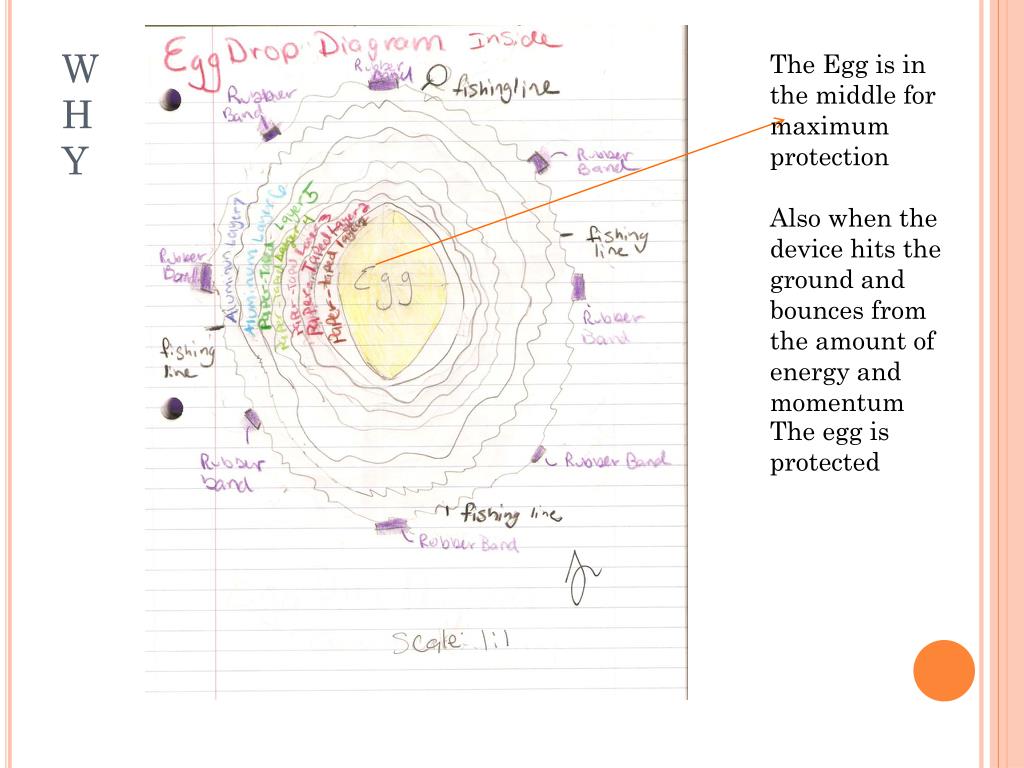 W
H
Y
Egg Drop Diagram Inside
Rubber
Band
fishing line
Rubber
Band
Rubber
Band
fishing
line
Rubber
Band
Rubber
Band
fishing
line
Aluminum Layer 7
Aluminum Layer 6
Paper-Taped Layer 5
Paper-Taped Layer 4
Paper-Taped Layer 3
Paper-Taped Layer 2
Paper-taped layer
Egg
Rubber
band
Rubber Band
fishing line
Rubber Band
Scale: 1:1
The Egg is in
the middle for
maximum
protection
Also when the
device hits the
ground and
bounces from
the amount of
energy and
momentum
The egg is
protected